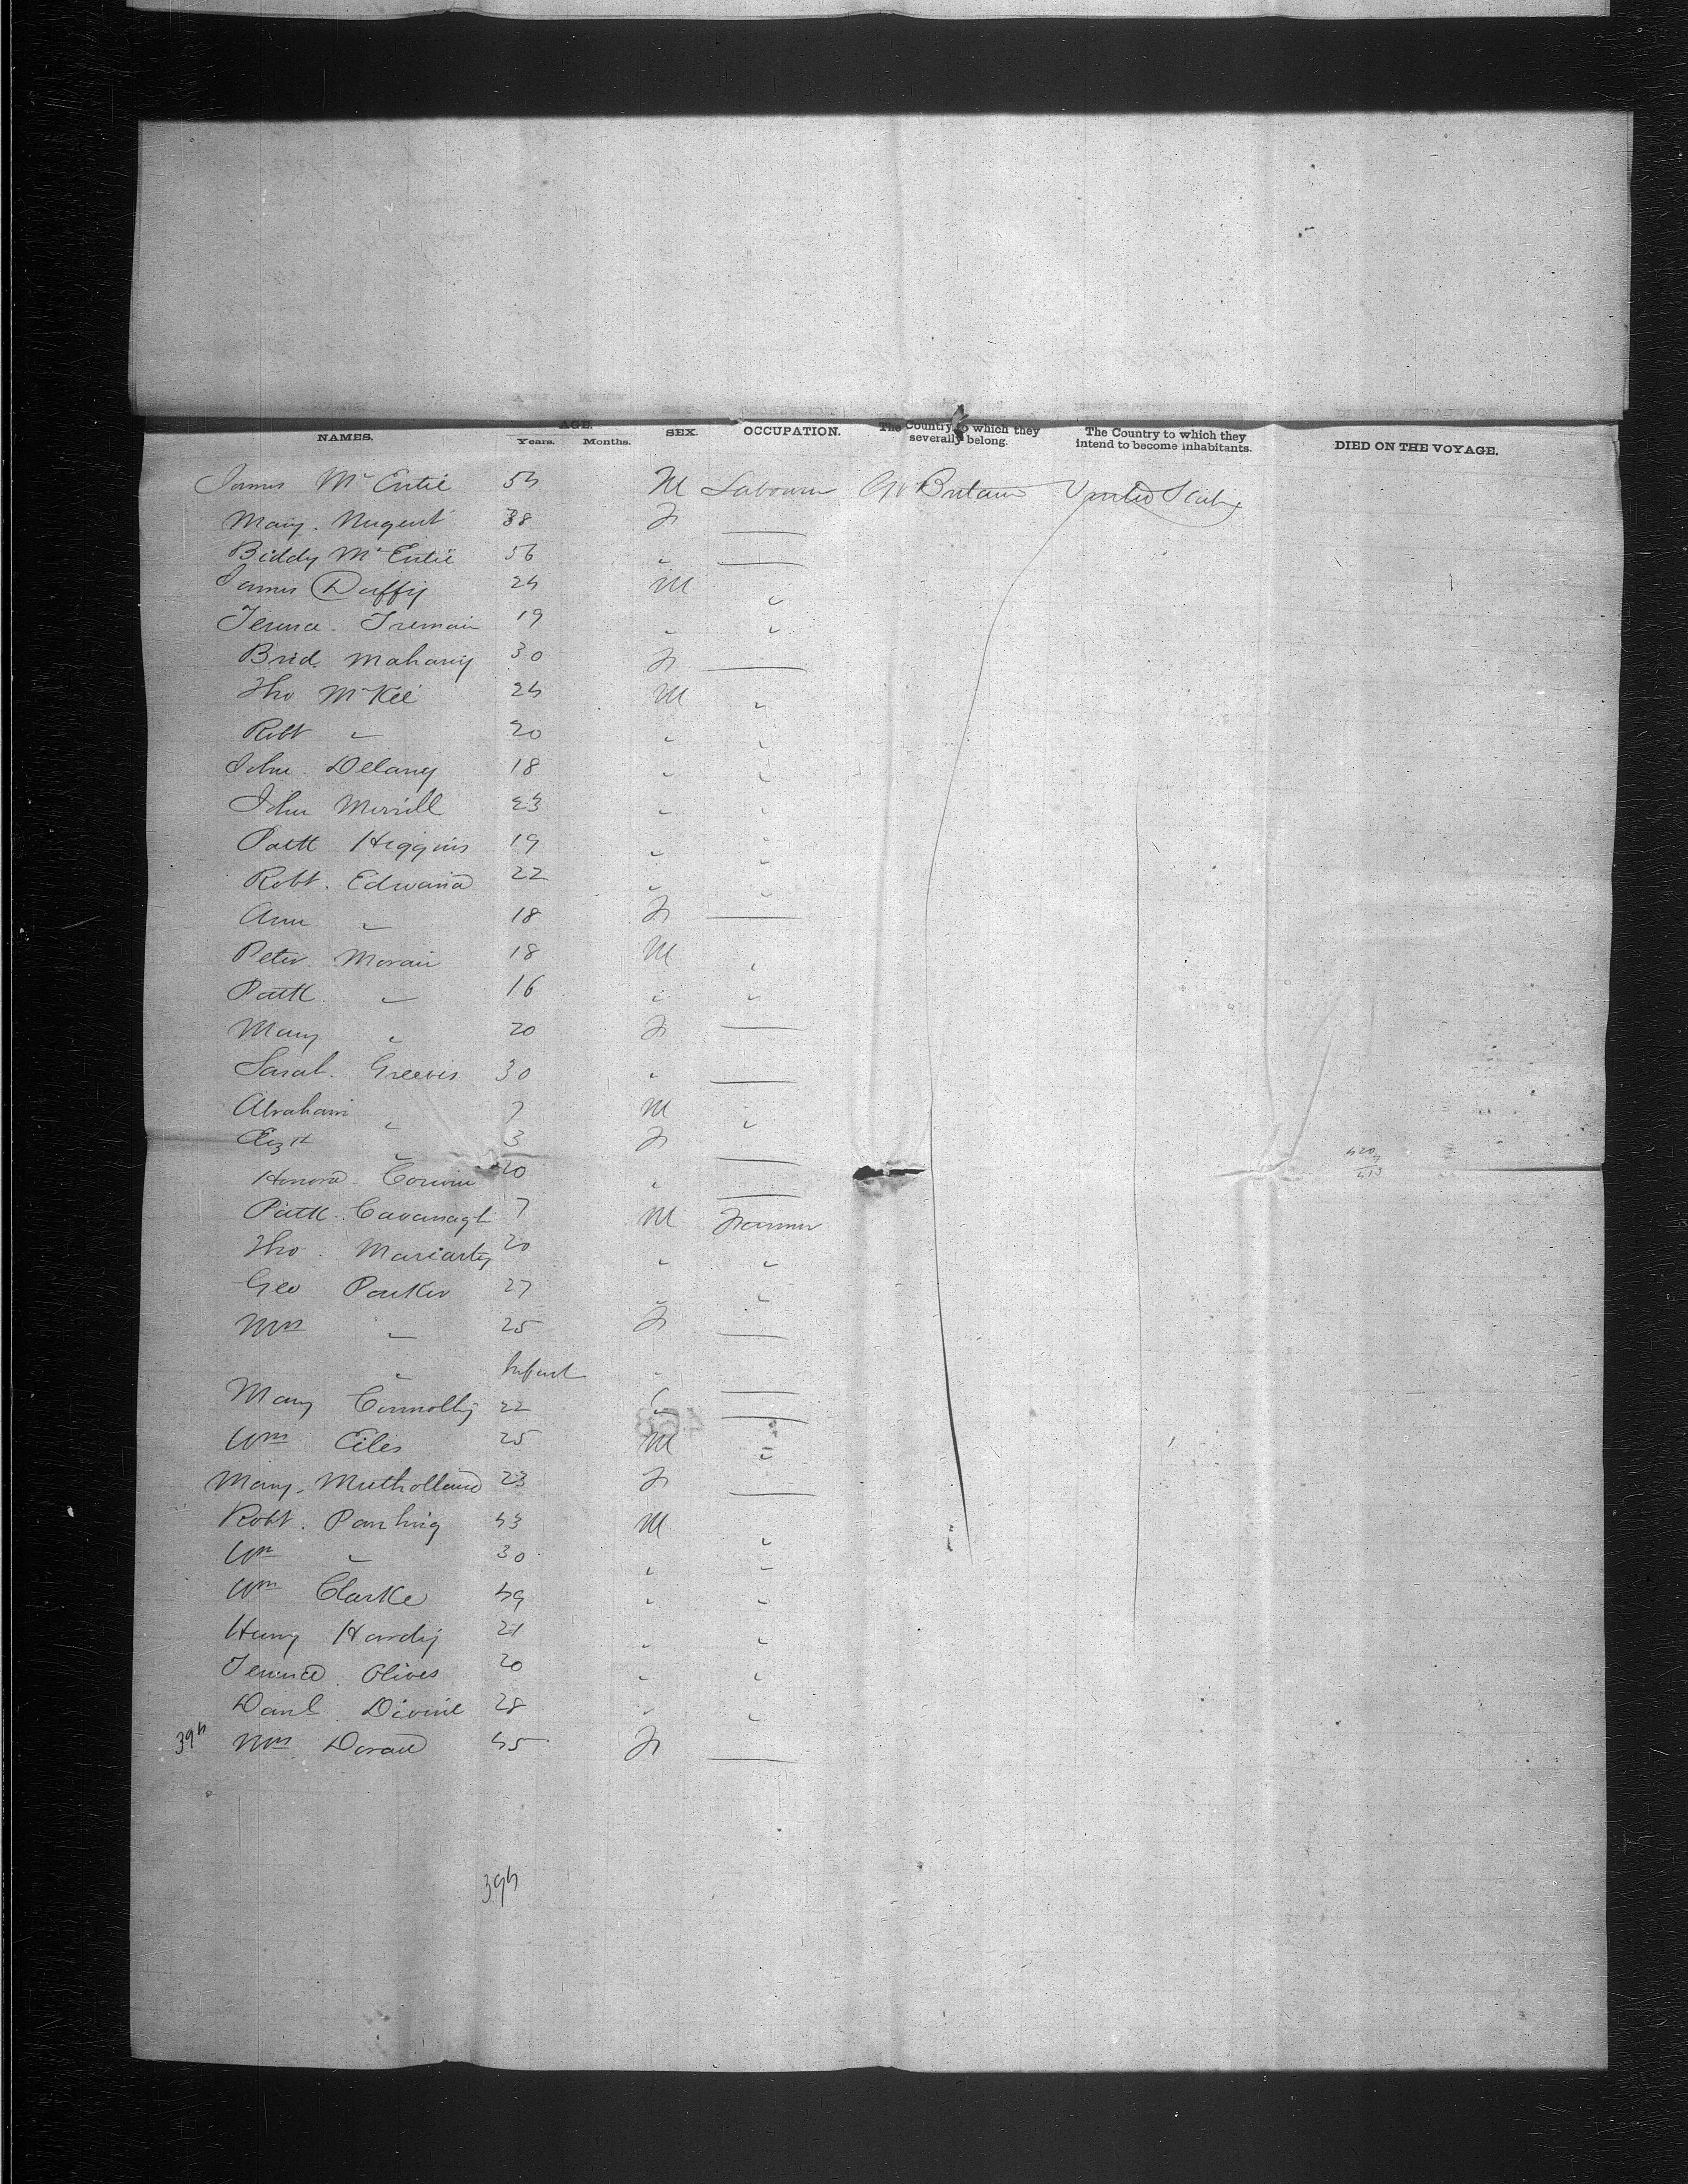 NAMES. AGE. Years. Months. SEX. OCCUPATION. The Country to which they severally belong. The Country to which they intend to become inhabitants. DIED ON THE VOYAGE.
James McEntie 54 M Labourer Gt Britain United States
Mary. Nugent 38 F —
Biddy McEntie 56 " —
James Duffy 24 M "
Terence. Tremain 19 " "
Brid. Mahany 30 F —
Tho McKee 24 M "
Robt " 20 " "
John Delany 18 " "
John Merrill 23 " "
Patk Higgins 19 " "
Robt. Edward 22 " "
Ann " 18 F —
Peter. Moran 18 M "
Patk. " 16 " "
Mary " 20 F —
Sarah. Greeves 30 " —
Abraham " 7 M "
Elizth " 3 F —
Honora. 20 " —
Patk. Cavanagh 7 M Farmer
Tho. Mariarty 20 " "
Geo Parker 27 " "
Mrs " 25 F —
" Infant " —
Mary Connolly 22 " —
Wm Eiles 25 M "
Mary. Mutholland 23 F —
Robt. 43 M "
Wm " 30 " "
Wm Clarke 49 " "
Henry Hardy 21 " "
Terence. Olives 20 " "
Danl. Divine 28 " "
394 Mrs Doran 45 F —
394